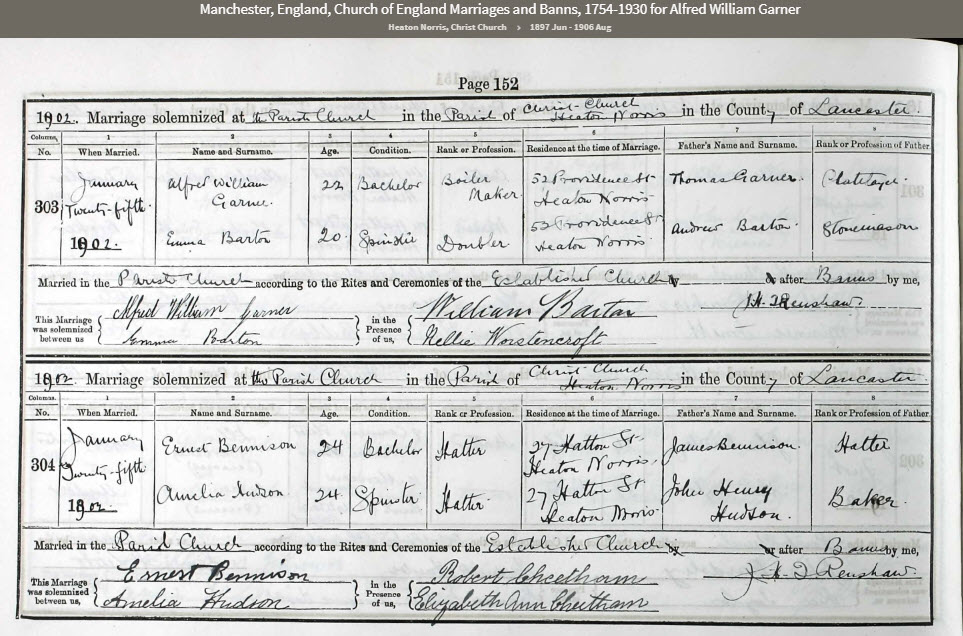 Manchester, England, Church of England Marriages and Banns, 1754-1930 for Alfred William Garner
Heaton Norris, Christ Church > 1897 Jun - 1906 Aug
Page 152
1902. Marriage solemnized at the Parish Church in the Parish of Christ-Church Heaton Norris in the County of Lancaster
Columns, 1 2 3 4 5 6 7 8
No. When Married. Name and Surname. Age. Condition. Rank or Profession. Residence at the time of Marriage. Father's Name and Surname. Rank or Profession of Father.
303 January Twenty-fifth 1902. Alfred William Garner 22 Bachelor Boiler Maker 52 Providence St Heaton Norris Thomas Garner Platelayer
Emma Barton 20 Spinster Doubler 52 Providence St Heaton Norris Andrew Barton Stonemason
Married in the Parish Church according to the Rites and Ceremonies of the Established Church by or after Banns by me,
Renshaw
This Marriage was solemnized between us Alfred William Garner Emma Barton in the Presence of us, William Barton Nellie Worstencroft
1902. Marriage solemnized at the Parish Church in the Parish of Christ Church Heaton Norris in the County of Lancaster
Columns. 1 2 3 4 5 6 7 8
No. When Married. Name and Surname. Age. Condition. Rank or Profession. Residence at the time of Marriage. Father's Name and Surname. Rank or Profession of Father
304 January Twenty-fifth 1902. Ernest Bennison 24 Bachelor Hatter 27 Hatton St Heaton Norris James Bennison Hatter
Amelia Hudson 24 Spinster Hatter 27 Hatton St Heaton Norris John Henry Hudson. Baker
Married in the Parish Church according to the Rites and Ceremonies of the Established Church by or after Banns by me,
Renshaw
This Marriage was solemnized between us, Ernest Bennison Amelia Hudson in the Presence of us, Robert Cheetham Elizabeth Ann Cheetham